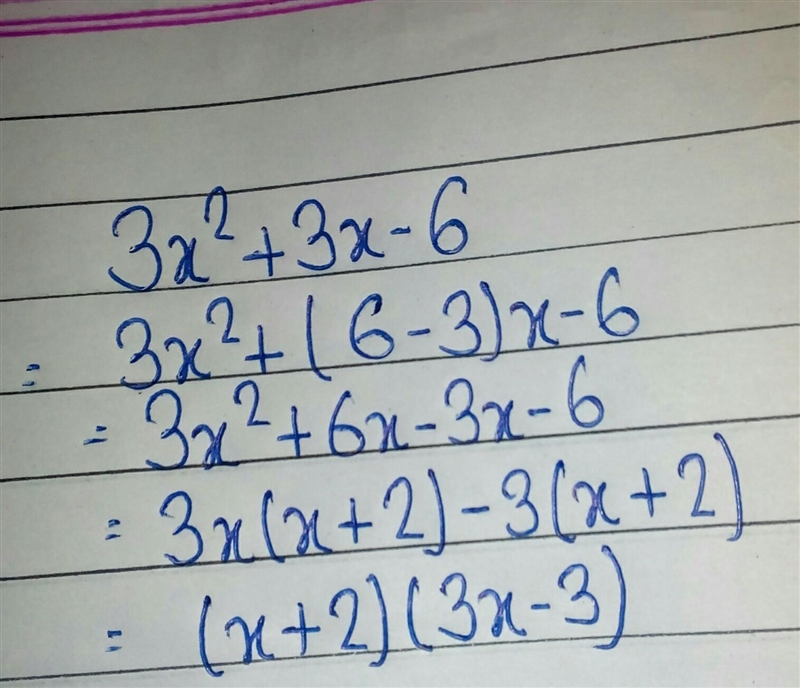 3x²+3x-6
= 3x²+(6-3)x-6
= 3x²+6x-3x-6
= 3x(x+2)-3(x+2)
= (x+2)(3x-3)